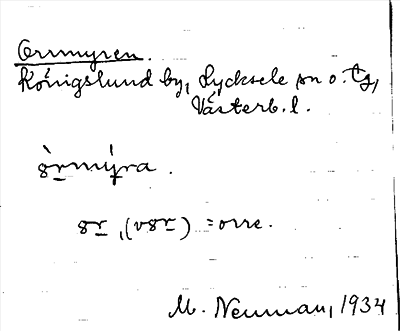 Orrmyren.
Königslund by, Lycksele sn o. tg,
Västerb. l.
òrmýra.
or, (vor) = orre.
M. Neuman, 1934